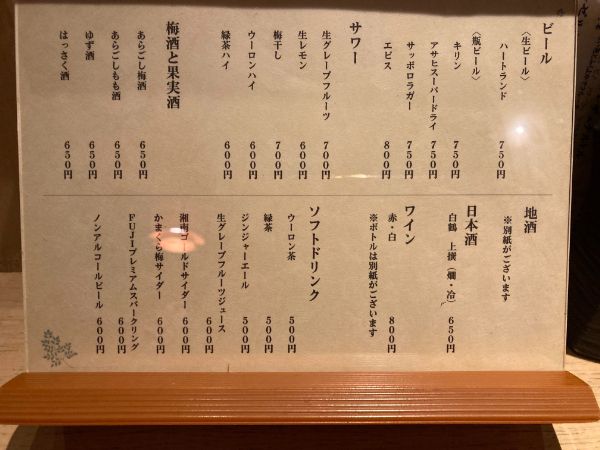 ビール
〈生ビール〉
ハートランド 750円
〈瓶ビール〉
キリン 750円
アサヒスーパードライ 750円
サッポロラガー 750円
エビス 800円
サワー
生グレープフルーツ 700円
生レモン 600円
梅干し 700円
ウーロンハイ 600円
緑茶ハイ 600円
梅酒と果実酒
あらごし梅酒 650円
あらごしもも酒 650円
ゆず酒 650円
はっさく酒 650円
地酒
※別紙がございます
日本酒
白鶴 上撰(燗・冷) 650円
ワイン
赤・白 800円
※ボトルは別紙がございます
ソフトドリンク
ウーロン茶 500円
緑茶 500円
ジンジャーエール 500円
生グレープフルーツジュース 600円
湘南ゴールドサイダー 600円
かまくら梅サイダー 600円
FUJIプレミアムスパークリング 600円
ノンアルコールビール 600円